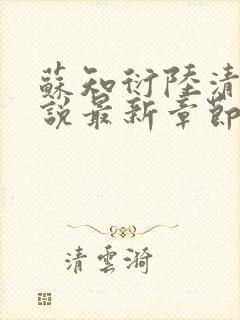 蘇知衍陸清
說最新章節
清雲漪